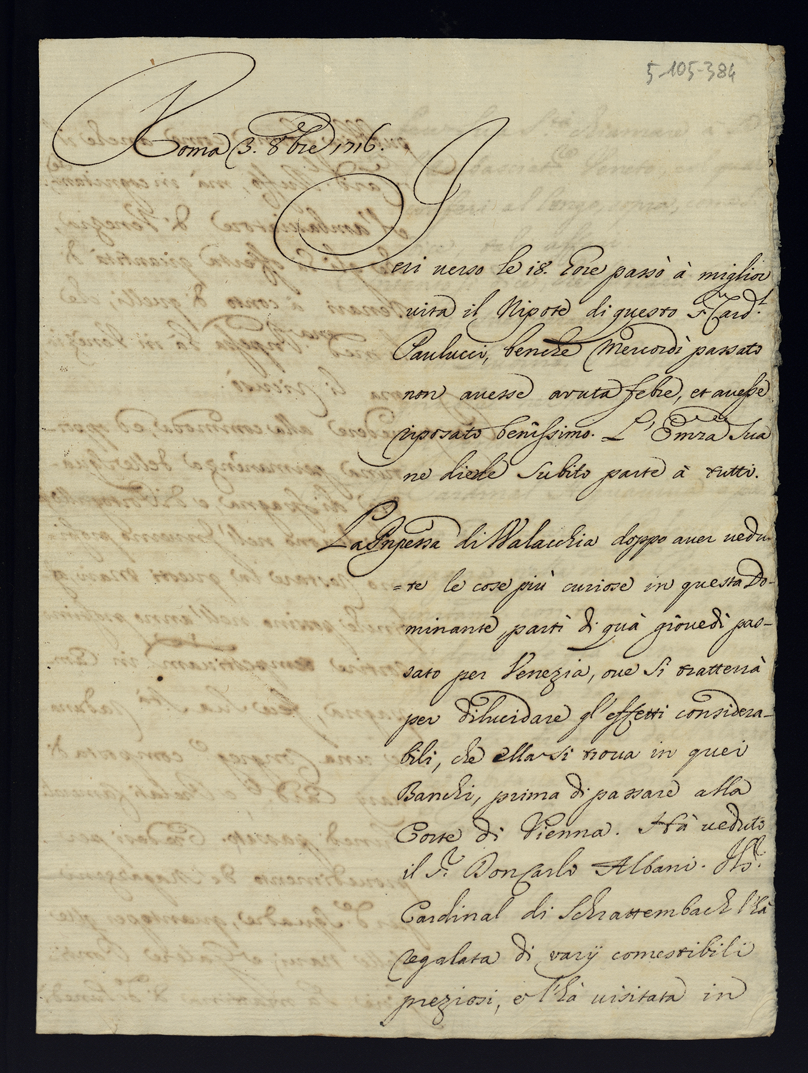 5-105-384
Roma 3. 8bre 1716.
Ieri verso le 18. hore passò à miglior
vita il Nipote di questo Sr. Card.l
Paulucci, benche Mercordì passato
non avesse avuta febre, et avesse
riposato benissimo. L'Emza Sua
ne diede subito parte à tutti.
La Pnpessa di Walacchia doppo aver vedu-
=te le cose più curiose in questa Do-
minante, partì di quà giovedì pas-
sato per Venezia, ove si tratterrà
per dilucidare gl'effetti considera-
bili, che ella si trova in quei
Banchi, prima di passare alla
Corte di Vienna. Hà veduto
il Sr. Don Carlo Albani. Il Sr.
Cardinal di Schrattembach l'hà
regalata di varij comestibili
preziosi, e l'hà visitata in